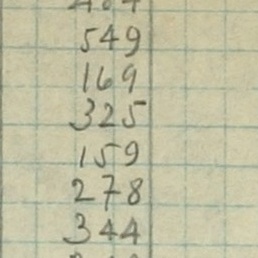 549
169
325
159
278
344